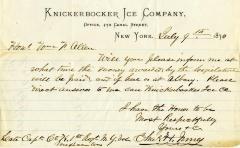 KNICKERBOCKER ICE COMPANY,
OFFICE, 432 CANAL STREET.
NEW YORK. July 9th 1870
Honl Wm F Allen
Will you please inform me at
what time the money awarded by the Legislature
will be paid, and if here or at Albany. Please
mail answer to me care Knickerbocker Ice Co
I have the Honor to be
Most Respectfully
Yours &c
Late Capt Co 1st Regt N.Y. Vols